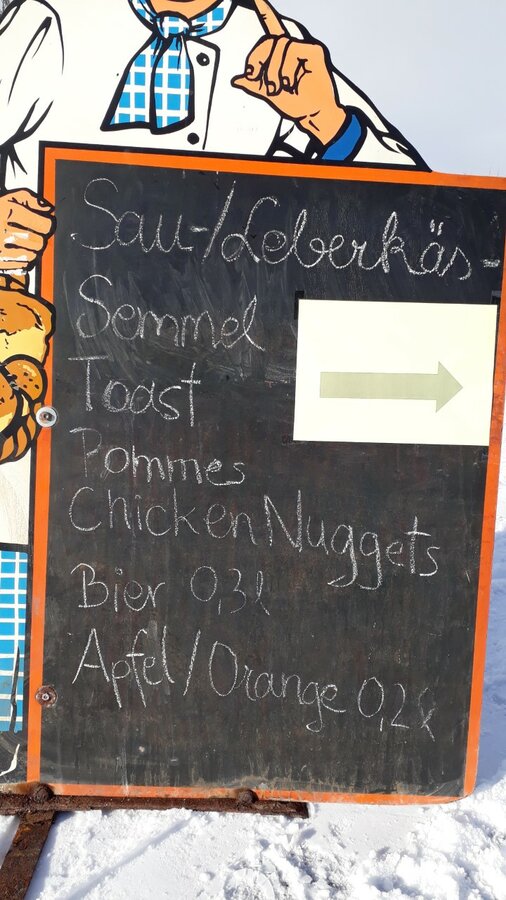 Sau-/Leberkäs-
Semmel
Toast
Pommes
Chicken Nuggets
Bier 0,3l
Apfel/Orange 0,2l